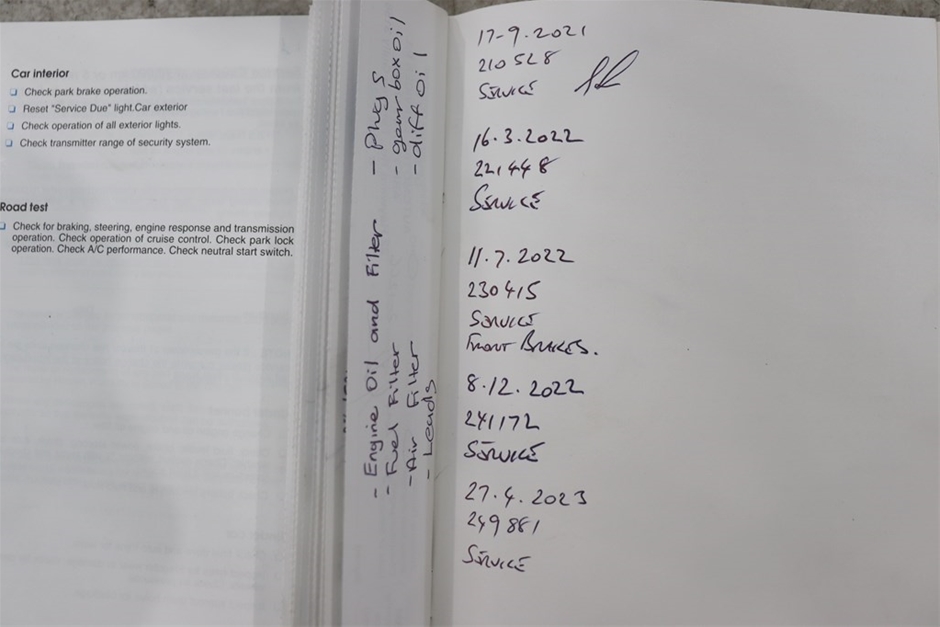 Car interior
❏ Check park brake operation.
❏ Reset "Service Due" light.Car exterior
❏ Check operation of all exterior lights.
❏ Check transmitter range of security system.
Road test
❏ Check for braking, steering, engine response and transmission
operation. Check operation of cruise control. Check park lock
operation. Check A/C performance. Check neutral start switch.
- Engine Oil and Filter
- Fuel Filter
- Air Filter
- Leads
- Plugs
- gearbox oil
- diff oil
17-9.2021
210528
SERVICE
16.3.2022
221448
SERVICE
11.7.2022
230415
SERVICE
FRONT BRAKES.
8.12.2022
241172
SERVICE
27.4.2023
249881
SERVICE